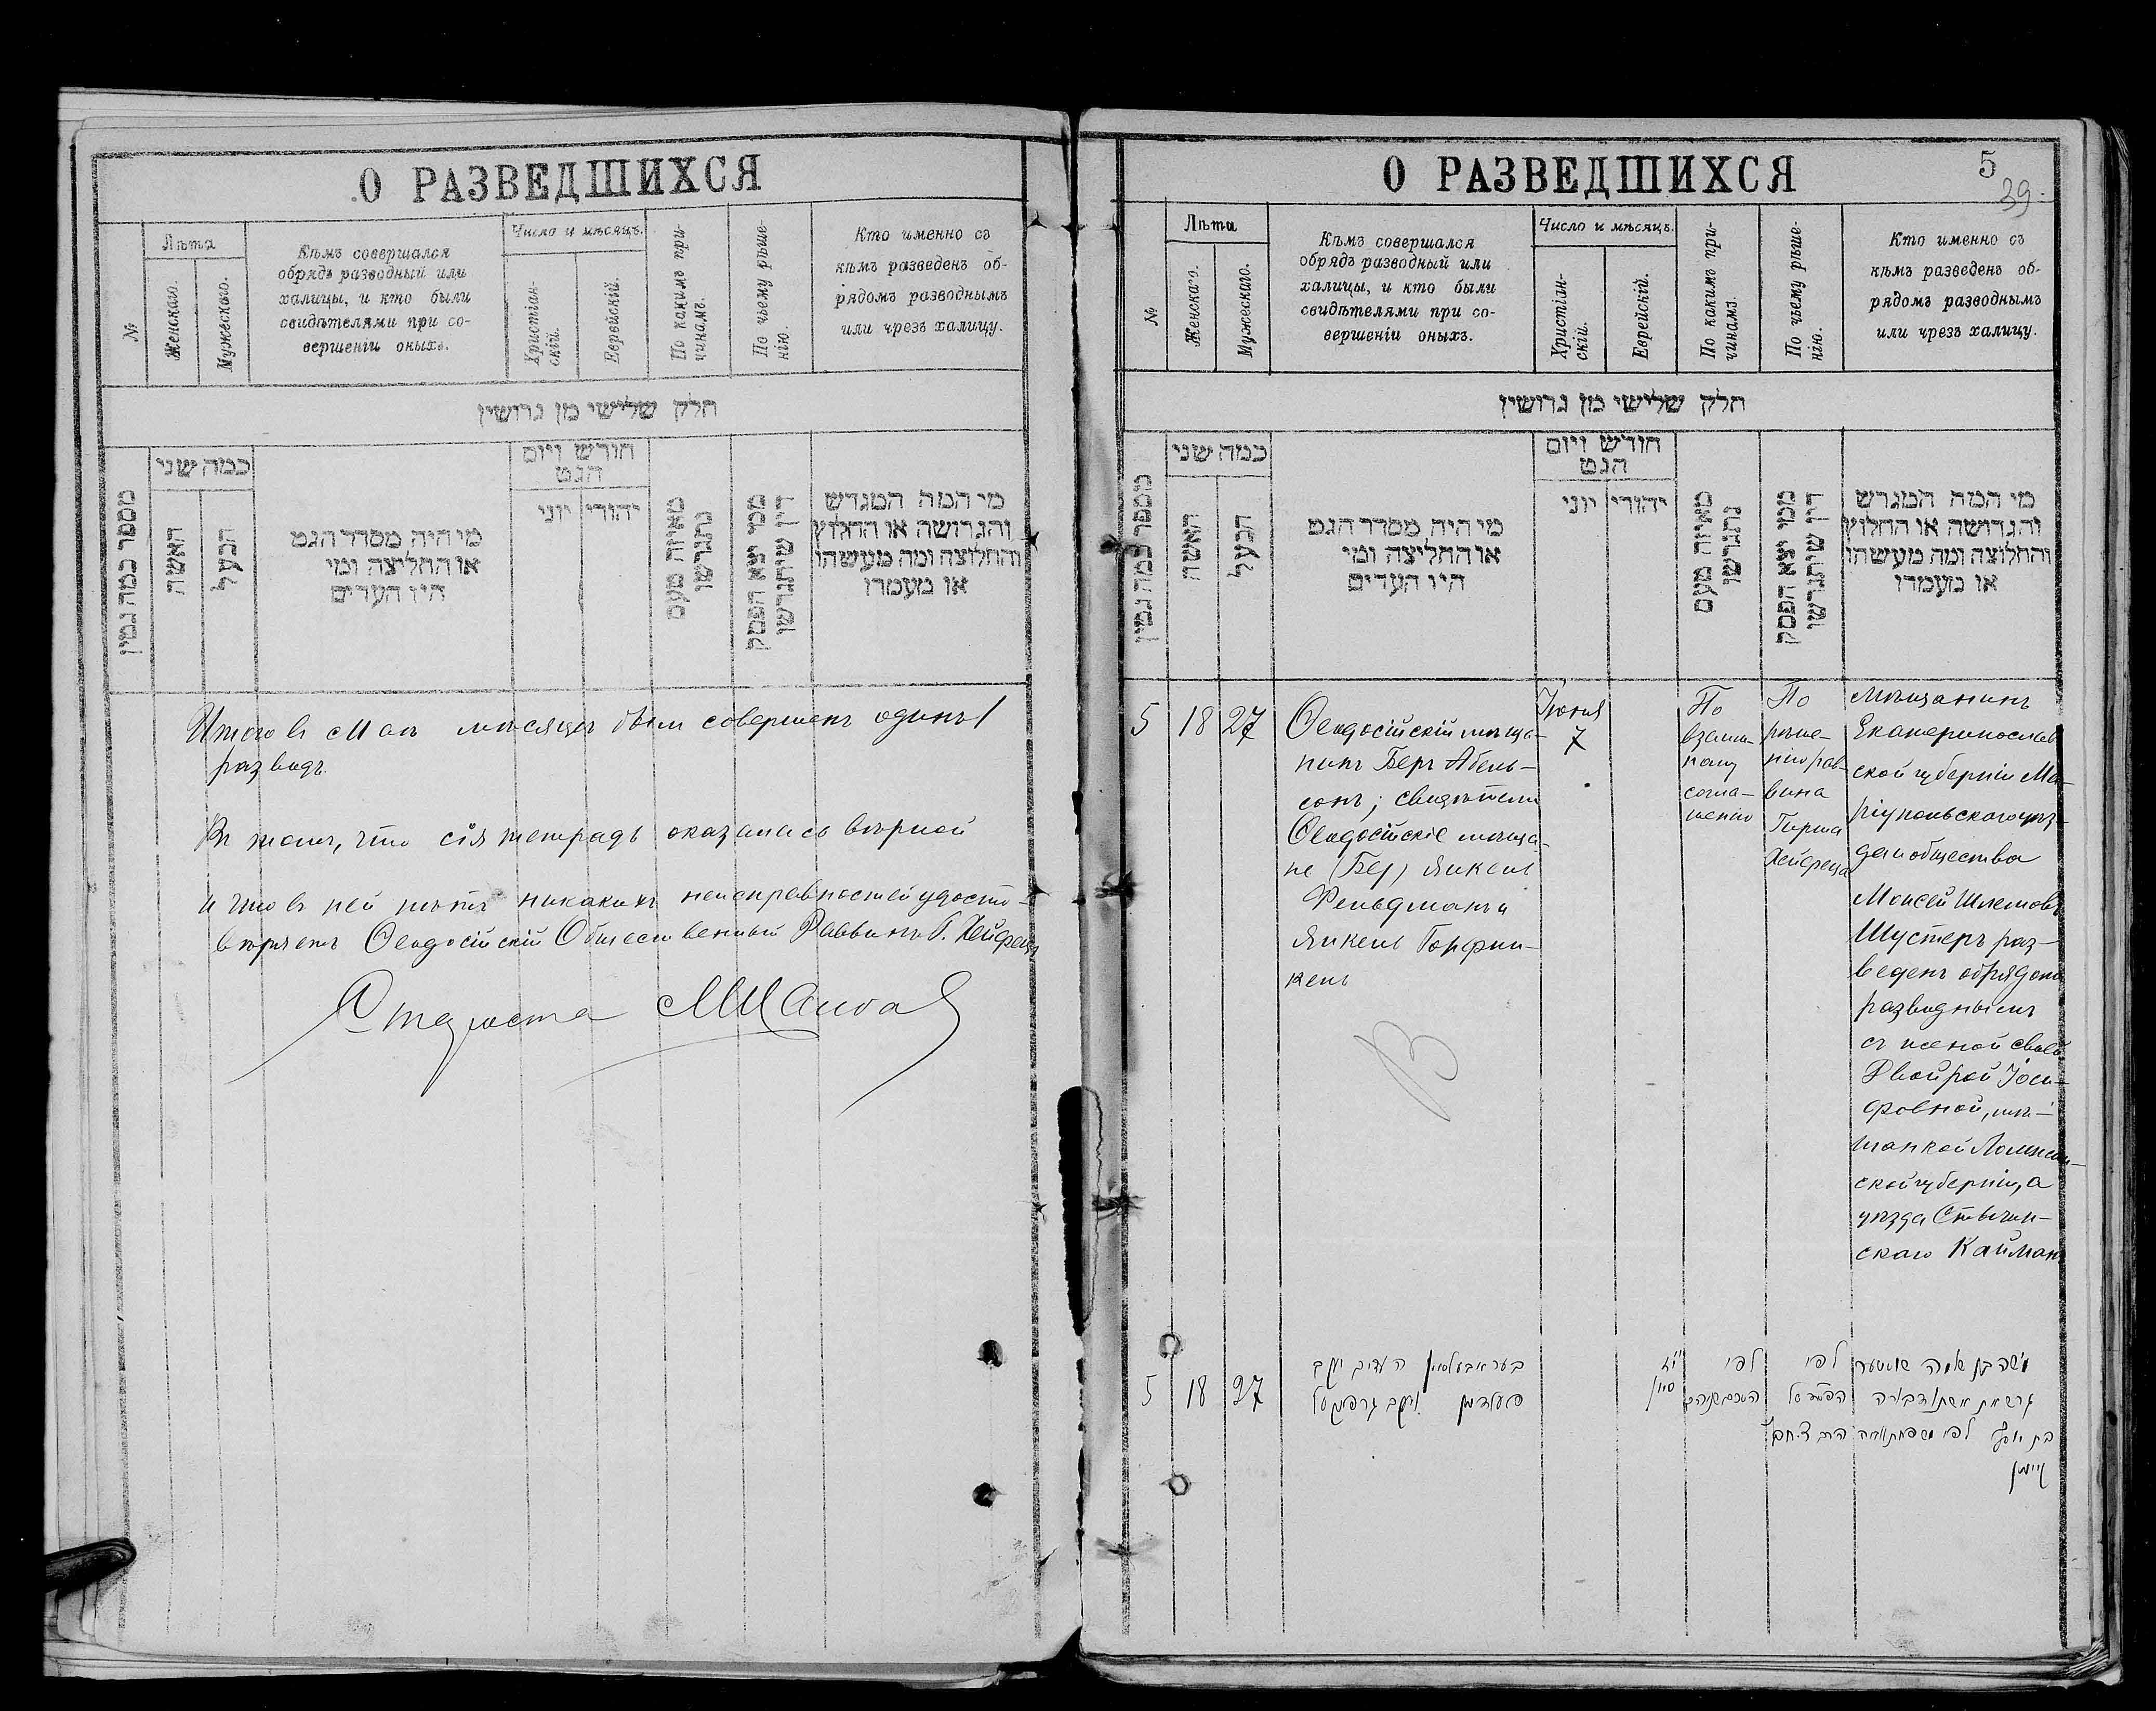 О РАЗВЕДШИХСЯ
№
Лѣта
Женскаго.
Мужескаго.
Кѣмъ совершался
обрядъ разводный или
халицы, и кто были
свидѣтелями при со-
вершеніи оныхъ.
Число и мѣсяцъ.
Христіан-
скій.
Еврейскій.
По какимъ при-
чинамъ.
По чьему рѣше-
нію.
Кто именно съ
кѣмъ разведенъ об-
рядомъ разводнымъ
или чрезъ халицу.
חלק שלישי מן גרושין
מספר כמה גטין
כמה שני
האשה
הבעל
מי היה מסדר הגט
או החליצה ומי
היו העדים
חודש ויום
הגט
יוני
יהודי
מאיזה טעם
נתגרשו
ממי יצא הפסק
דין שיתגרשו
מי המה המגרש
והגרושה או החלוץ
והחלוצה ומה מעשהו
או מעמדו
Итого въ Маѣ мѣсяцѣ былъ совершенъ одинъ 1
разводъ.
Въ томъ, что сія тетрадь оказалась вѣрной
и что въ ней нѣтъ никакихъ неисправностей удосто-
вѣряетъ Ѳеодосійскій Общественный Раввинъ Г. Хейфецъ
Староста
О РАЗВЕДШИХСЯ
5
39.
№
Лѣта
Женскаго.
Мужескаго.
Кѣмъ совершался
обрядъ разводный или
халицы, и кто были
свидѣтелями при со-
вершеніи оныхъ.
Число и мѣсяцъ.
Христіан-
скій.
Еврейскій.
По какимъ при-
чинамъ.
По чьему рѣше-
нію.
Кто именно съ
кѣмъ разведенъ об-
рядомъ разводнымъ
или чрезъ халицу.
חלק שלישי מן גרושין
מספר כמה גטין
כמה שני
האשה
הבעל
מי היה מסדר הגט
או החליצה ומי
היו העדים
חודש ויום
הגט
יוני
יהודי
מאיזה טעם
נתגרשו
ממי יצא הפסק
דין שיתגרשו
מי המה המגרש
והגרושה או החלוץ
והחלוצה ומה מעשהו
או מעמדו
5
18
27
Ѳеодосійскій мѣща-
нинъ Беръ Абель-
сонъ; свидѣтели
Ѳеодосійскіе мѣща-
не (Бер) Янкель
Фельдманъ и
Янкель Горфин-
кель
Іюня
7
По
взаим-
ному
согла-
шенію
По
рѣше-
нію рав-
вина
Гирша
Хейфеца
Мѣщанинъ
Екатеринослав
ской губерніи Ма-
ріупольскаго уѣз-
да и общества
Моисей Шлемовъ
Шустеръ раз-
веденъ обрядомъ
разводнымъ
съ женой своей
Двойрой Іоси-
фовной, мѣ-
щанкой Ломжин-
ской губерніи, а
уѣзда
скаго Кайманъ
5
18
27
בער אבעלסאן העדים יעקב
פעלדמן ויעקב גרפינקעל
סיון
לפי
לפי
משה בן שלמה שוסטער
גרש את אשתו דבורה
בת יוסף לפי משפחתה